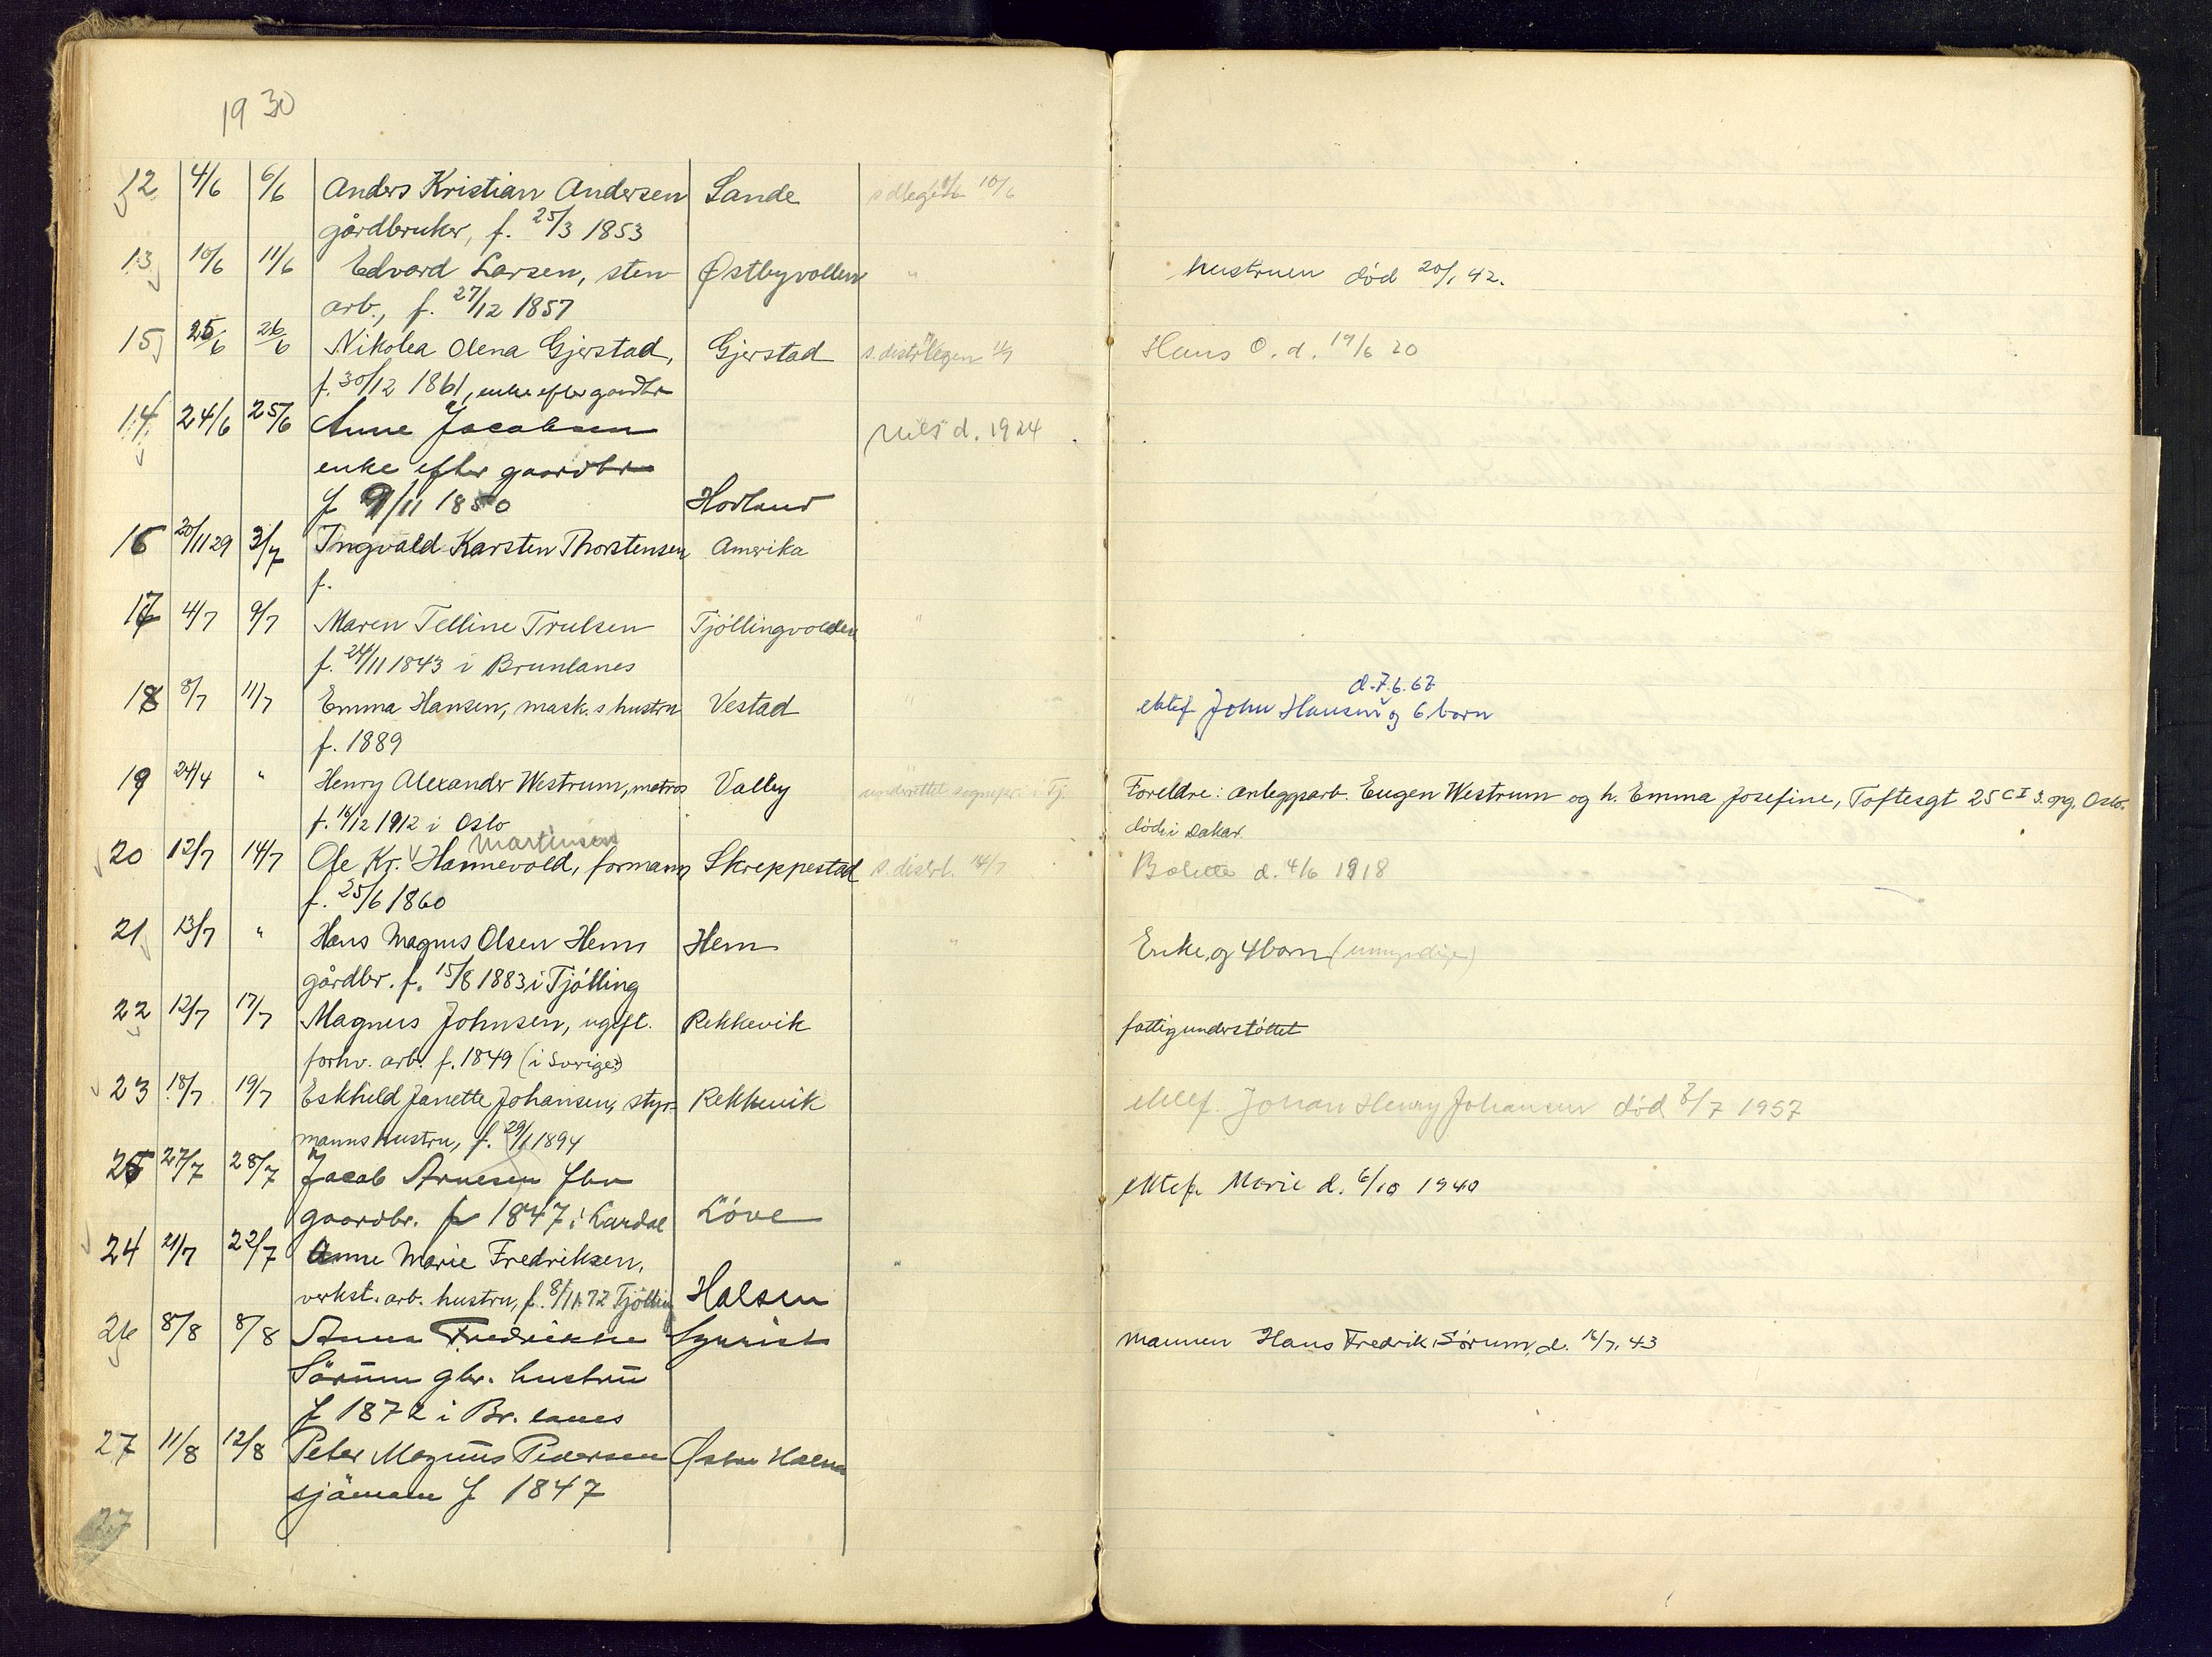 1930
12 4/6 6/6 Anders Kristian Andersen Sande 10/6
gårdbruker, f. 25/3 1853
13 10/6 11/6 Edvard Larsen, sten- Østbyvollen " hustruen död 20/1 42.
arb., f. 27/12 1857
15 25/6 26/6 Nikolea Olena Gjerstad, Gjerstad s. distr.legen Hans O. d. 19/6 20
f. 30/12 1861, enke efter gaardbr
14 24/6 25/6 Anne Jacobsen Nils d. 1924
enke efter gaardbr
f 9/11 1850 Hovland
16 20/11 29 3/7 Ingvald Karsten Thorstensen Amerika
f.
17 4/7 9/7 Maren Telline Trulsen Tjöllingvolden "
f. 24/11 1843 i Brunlanes
d. 7.6.67
18 8/7 11/7 Emma Hansen, mask.s hustru Vestad " ektef John Hansen og 6 barn
f. 1889
19 24/4 " Henry Alexander Westrum, matros Valby underrettet sognepr. i Tj. Foreldre: anleggsarb. Eugen Westrum og h. Emma Josefine, Toftesgt 25 C I 3. opg. Oslo.
f. 16/12 1912 i Oslo döde i Dakar.
Martinsen
20 12/7 14/7 Ole Kr. Hannevold, formann Skreppestad s. distrl. 14/7 Bolette d. 4/6 1918
f. 25/6 1860
21 13/7 " Hans Magnus Olsen Hem Hem " Enke og 4 barn (umyndige)
gårdbr. f. 15/8 1883 i Tjölling
22 12/7 17/7 Magnus Johnsen, ugift. Rekkevik fattigunderstöttet
forhv. arb. f. 1849 (i Sverige)
23 18/7 19/7 Eskhild Janette Johansen, styr- Rekkevik ektef. Johan Henry Johansen död 8/7 1957
manns hustru, f. 29/1 1894
25 27/7 28/7 Jacob Arnesen fhv ektef. Marie d. 6/10 1940
gaardbr. f 1847 i Lardal Löve
24 21/7 22/7 Anne Marie Fredriksen, "
verkst. arb. hustru, f. 8/11 72 Tjölling Halsen
26 8/8 8/8 Anna Fredrikke mannen Hans Fredrik Sørum, d. 16/7. 43
Sörum gbr. hustru
f 1872 i Br. lanes
27 11/8 12/8 Peter Magnus Pedersen Østre Halsen
sjömann f 1847
27